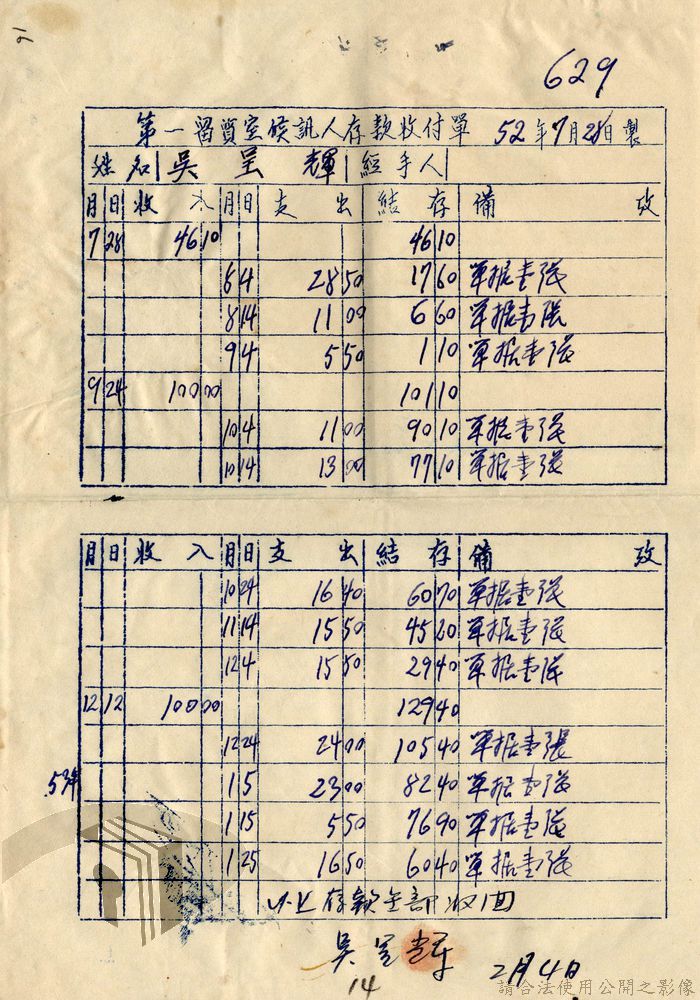 629
第一留質室候訊人存款收付單 52年7月28日製
姓名 吳呈輝 經手人
月 日 收入 月 日 支出 結存 備攷
7 28 46 10 46 10
8 4 28 50 17 60 單据壹張
8 14 11 00 6 60 單据壹張
9 4 5 50 1 10 單据壹張
9 24 100 00 101 10
10 4 11 00 90 10 單据壹張
10 14 13 00 77 10 單据壹張
月 日 收入 月 日 支出 結存 備攷
10 24 16 40 60 70 單据壹張
11 14 15 50 45 20 單据壹張
12 4 15 50 29 40 單据壹張
12 12 100 00 129 40
12 24 24 00 105 40 單据壹張
53年 1 5 23 00 82 40 單据壹張
1 15 5 50 76 90 單据壹張
1 25 16 50 60 40 單据壹張
以上存款全部收回
吳呈輝 2月4日
14
請合法使用公開之影像